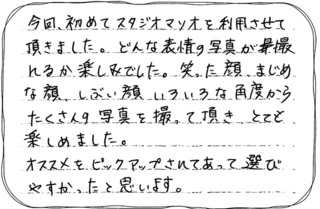 今回、初めてスタジオマリオを利用させて
頂きました。どんな表情の写真が撮
れるか楽しみでした。笑った顔、まじめ
な顔、しぶい顔いろいろな角度から
たくさんの写真を撮って頂き、とても
楽しめました。
オススメをピックアップされてあって選び
やすかったと思います。